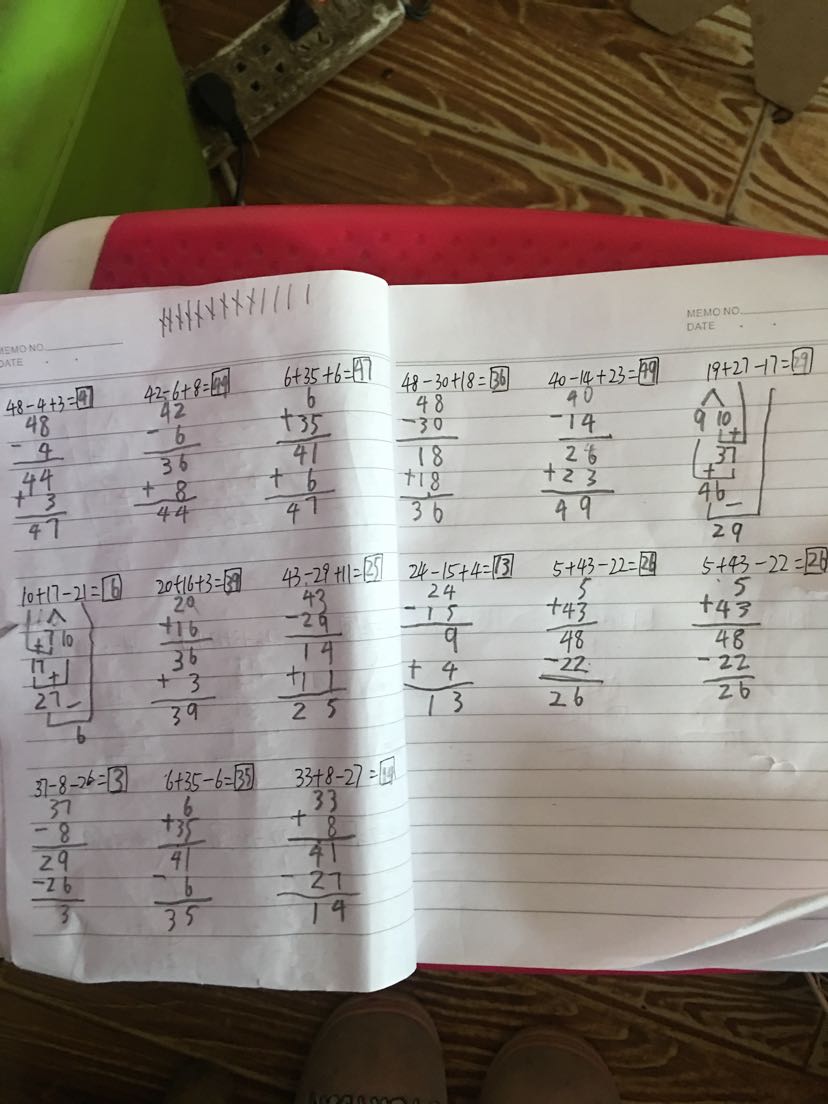 MEMO NO.
DATE
48-4+3=47
48
- 4
44
+ 3
47
42-6+8=44
42
- 6
36
+ 8
44
6+35+6=47
6
+35
41
+ 6
47
10+17-21=6
7 10
+
17
+
27
-
6
20+16+3=39
20
+16
36
+ 3
39
43-29+11=25
43
-29
14
+11
25
37-8-26=3
37
-8
29
-26
3
6+35-6=35
6
+35
41
- 6
35
33+8-27=14
33
+ 8
41
- 27
14
MEMO NO.
DATE
48-30+18=36
48
-30
18
+18
36
40-14+23=49
40
-14
26
+23
49
19+27-17=29
9 10
+
37
+
46
-
29
24-15+4=13
24
-15
9
+ 4
13
5+43-22=26
5
+43
48
-22
26
5+43-22=26
5
+43
48
-22
26